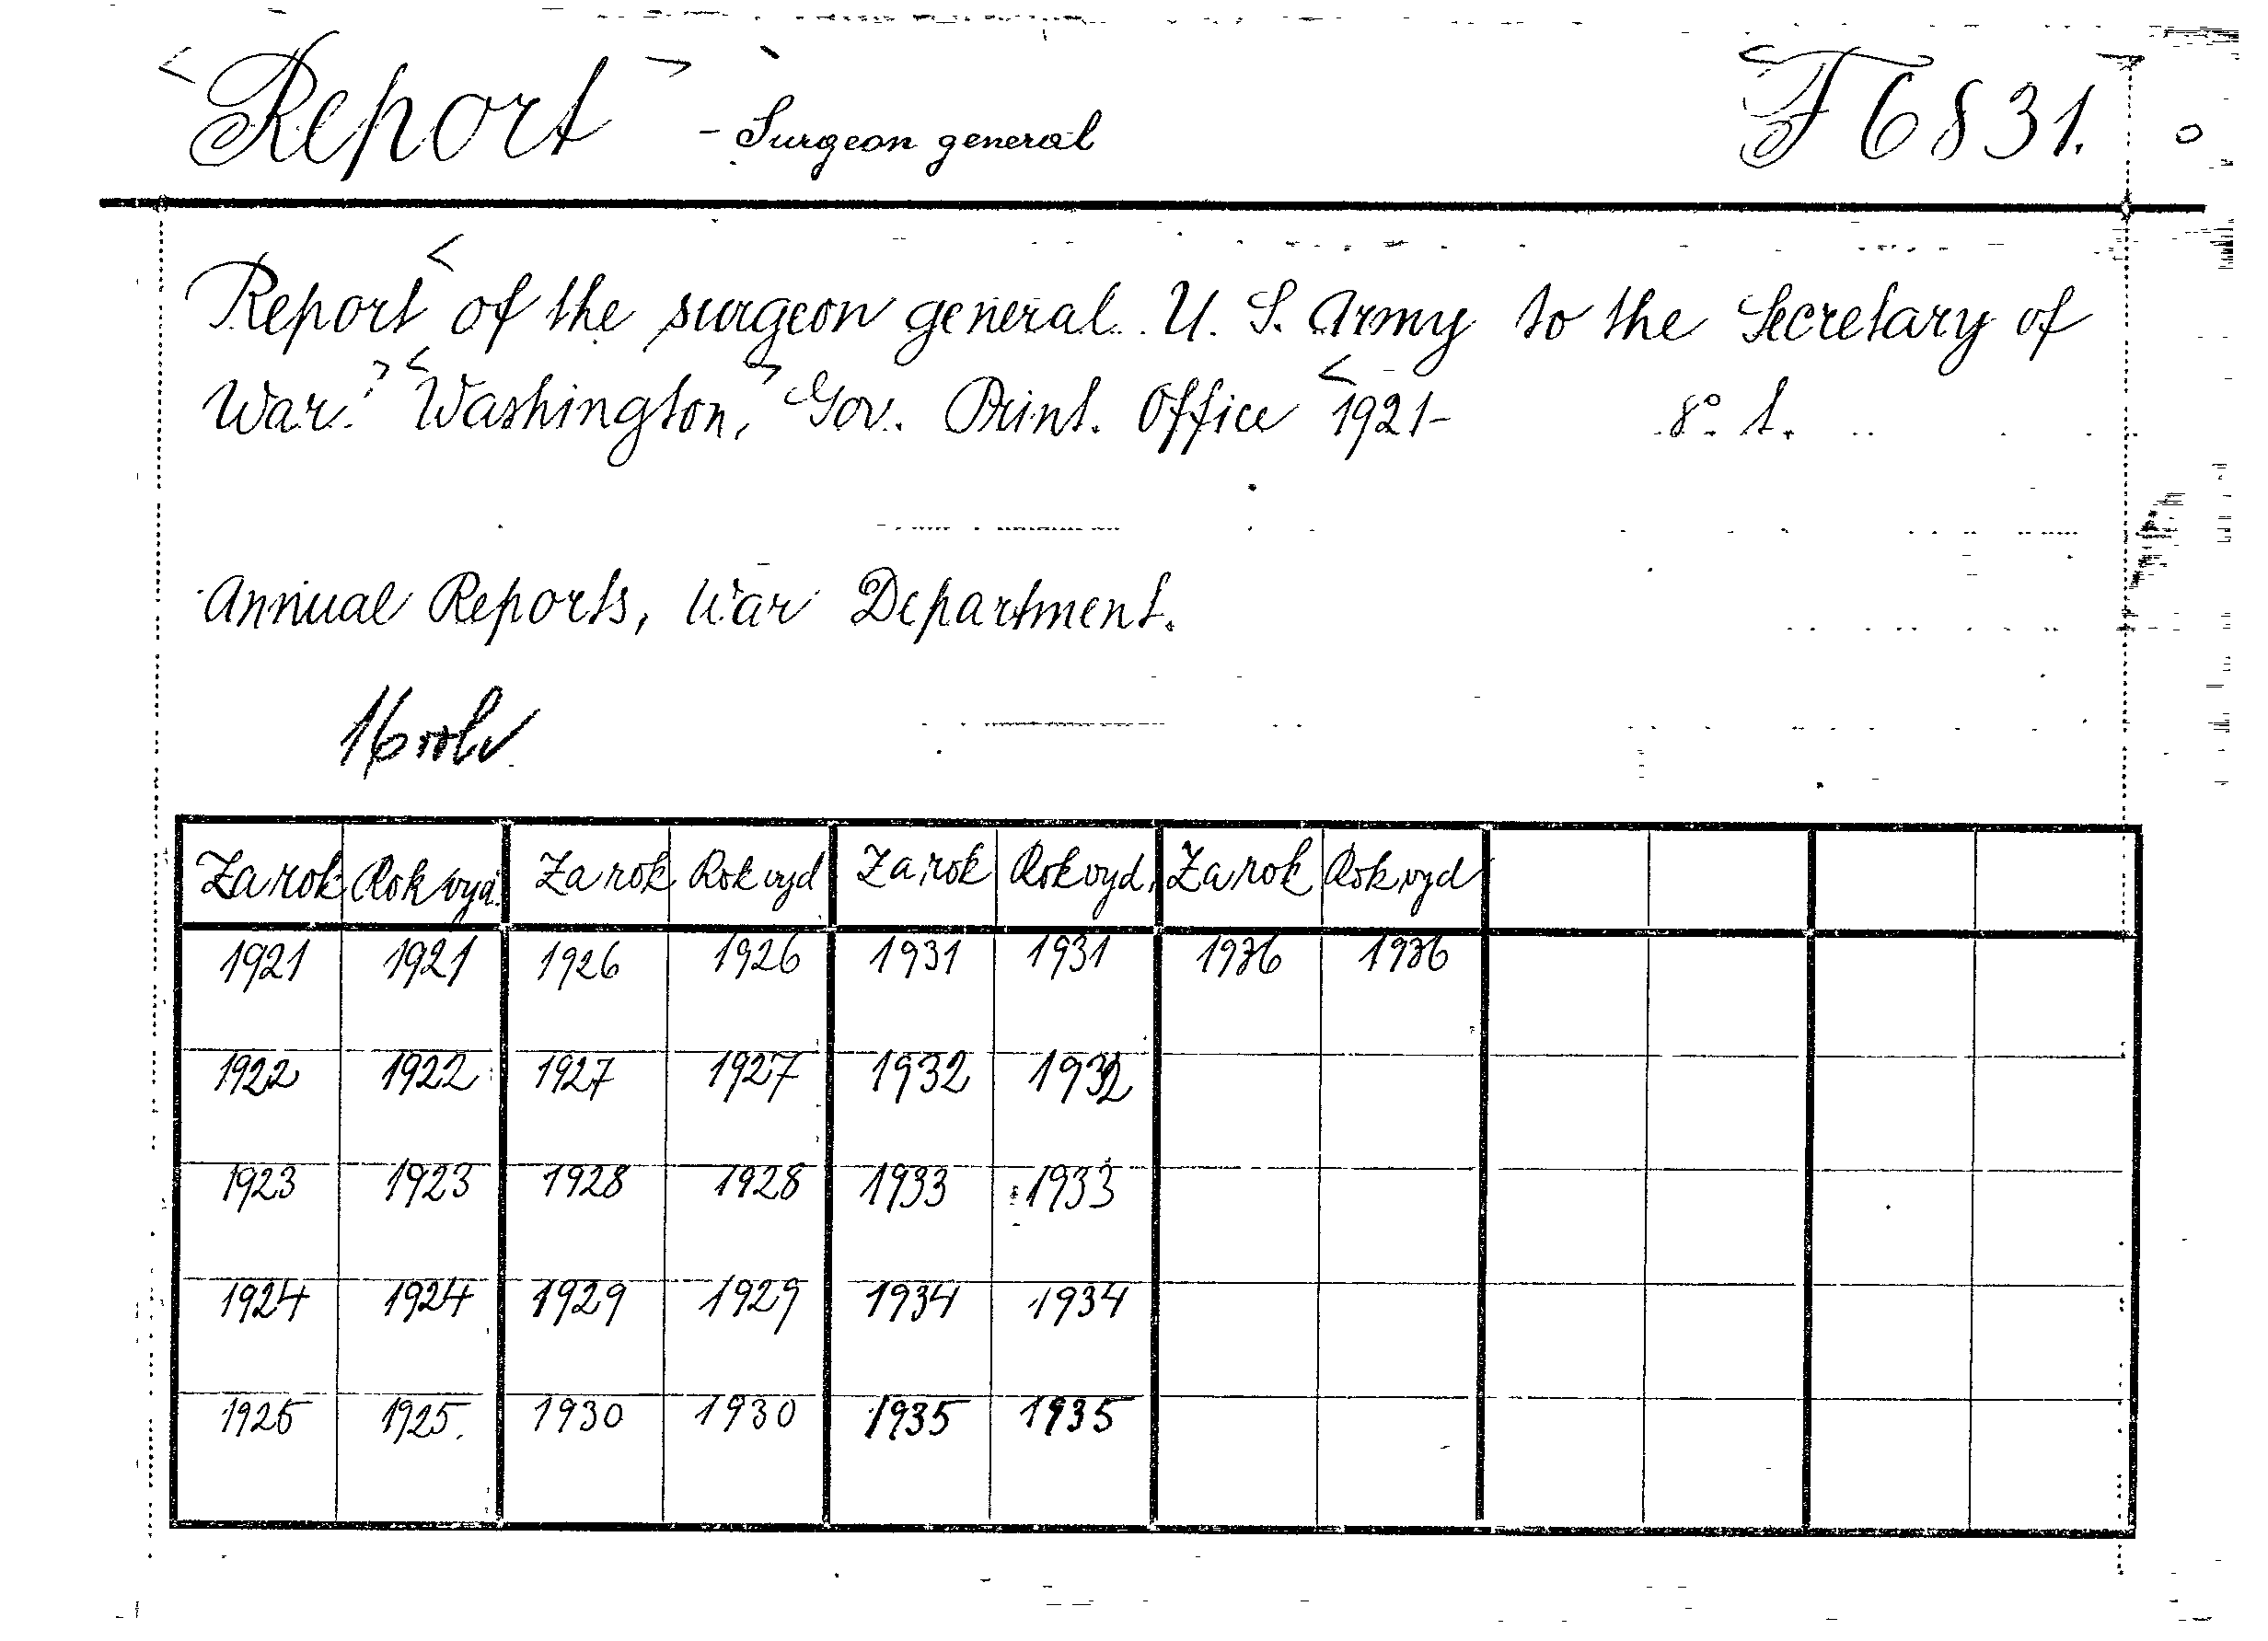 <Report> - Surgeon general F 6831.
Report of the surgeon general U. S. Army to the Secretary of
War. Washington, Gov. Print. Office 1921- 8°. t.
Annual Reports, War Department.
Za rok Rok vyd. Za rok Rok vyd Za rok Rok vyd. Za rok Rok vyd
1921 1921 1926 1926 1931 1931 1936 1936
1922 1922 1927 1927 1932 1932
1923 1923 1928 1928 1933 1933
1924 1924 1929 1929 1934 1934
1925 1925. 1930 1930 1935 1935